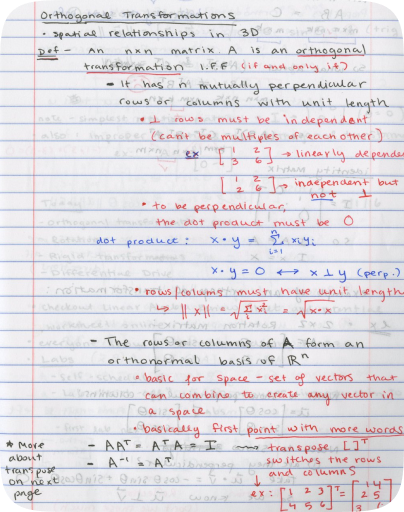 Orthogonal Transformations
• spatial relationships in 3D
Def - An n×n matrix A is an orthogonal
transformation I.F.F (if and only if)
- It has n mutually perpendicular
rows or columns with unit length
• ⊥ rows must be independent
(cant be multiples of each other)
ex [1 2
3 6] → linearly depende
[1 2
2 6] → independent but
not ⊥
• to be perpendicular,
the dot product must be 0
dot produce: x·y = Σ xiyi
n
i=1
x·y = 0 ↔ x ⊥ y (perp.)
• rows/colums must have unit length
↳ ||x|| = = √x·x
- The rows or columns of A form an
orthonormal basis of ℝⁿ
• basic for space - set of vectors that
can combine to create any vector in
a space
• basically first point with more words
* More about transpose on next page
- AAᵀ = AᵀA = I
- A⁻¹ = Aᵀ
→ transpose [ ]ᵀ
switches the rows
and columns
ex: [1 2 3
4 5 6]ᵀ = [1 4
2 5
3